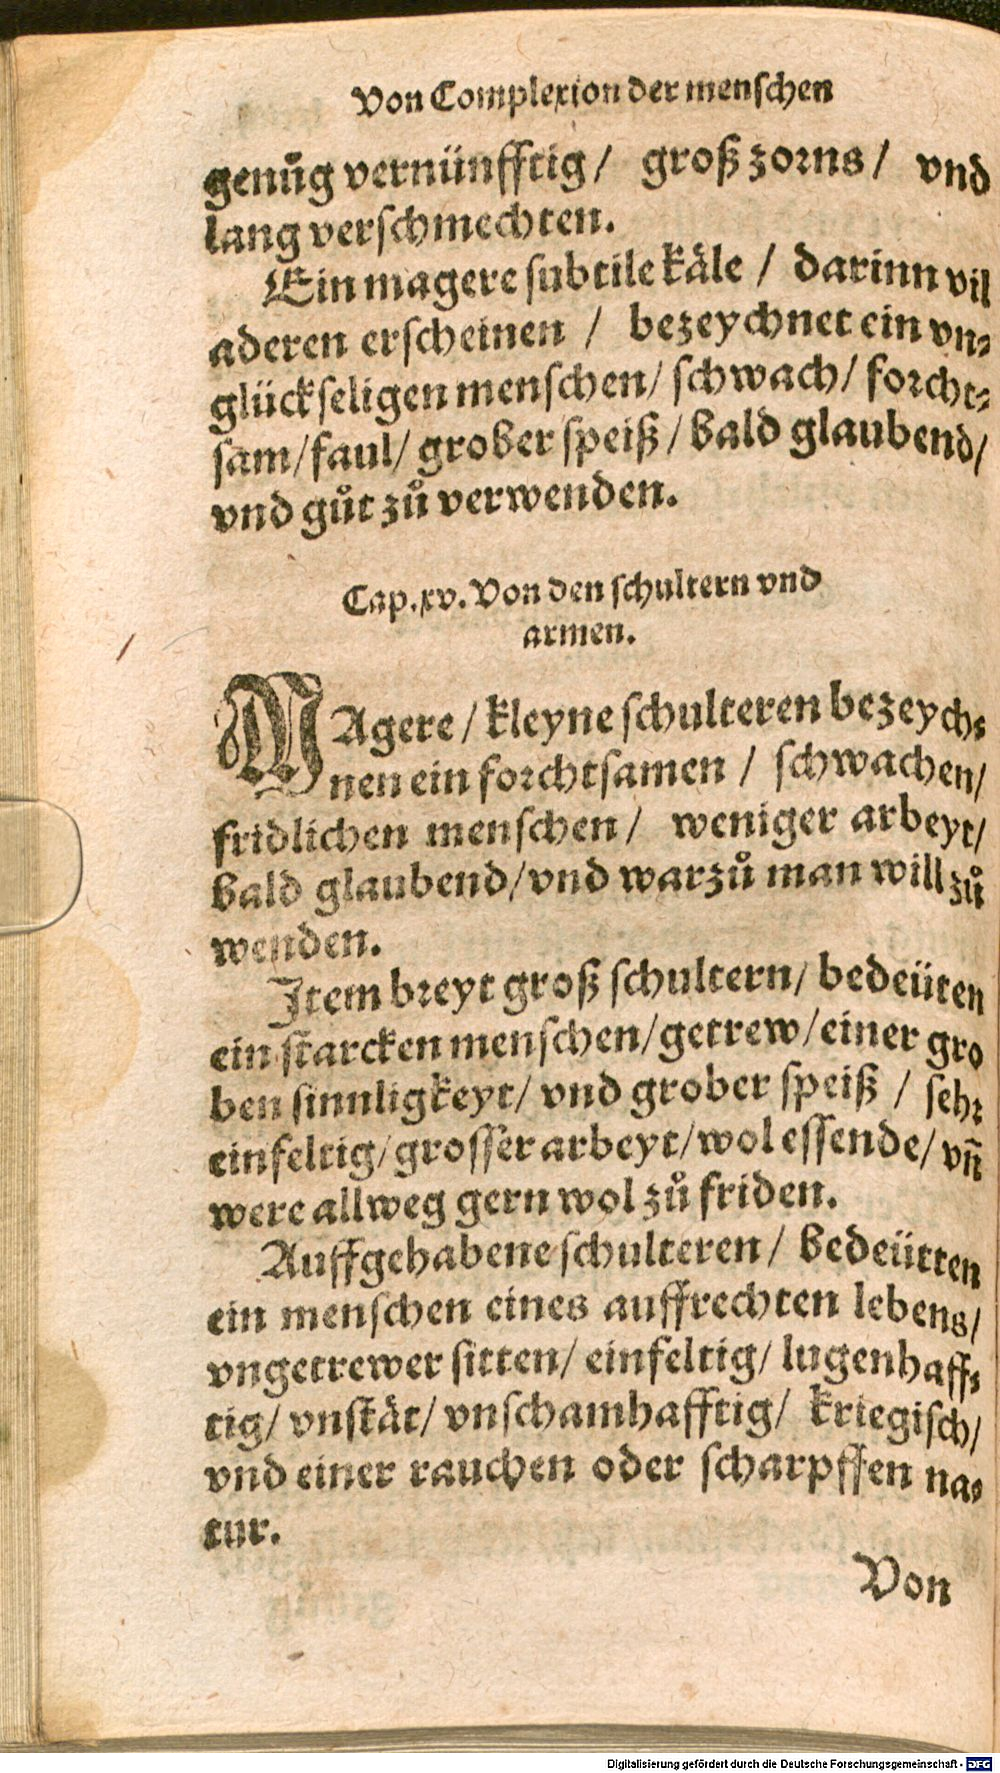 Von Complexion der menschen
genůg vernünfftig / groß zorns / vnd
lang verschmechten.
Ein magere subtile käle / darinn vil
aderen erscheinen / bezeychnet ein vn⸗
glückseligen menschen / schwach / forcht⸗
sam / faul / grober speiß / bald glaubend /
vnd gůt zů verwenden.
Cap. xv. Von den schultern vnd
armen.
MAgere / kleyne schulteren bezeych⸗
nen ein forchtsamen / schwachen /
fridlichen menschen / weniger arbeyt /
bald glaubend / vnd warzů man will zů
wenden.
Item breyt groß schultern / bedeüten
ein starcken menschen / getrew / einer gro
ben sinnligkeyt / vnd grober speiß / sehr
einfeltig / grosser arbeyt / wol essende / vñ
were allweg gern wol zů friden.
Auffgehabene schulteren / bedeütten
ein menschen eines auffrechten lebens /
vngetrewer sitten / einfeltig / lugenhaff⸗
tig / vnstät / vnschamhafftig / kriegisch /
vnd einer rauchen oder scharpffen na⸗
tur.
Von
Digitalisierung gefördert durch die Deutsche Forschungsgemeinschaft - DFG